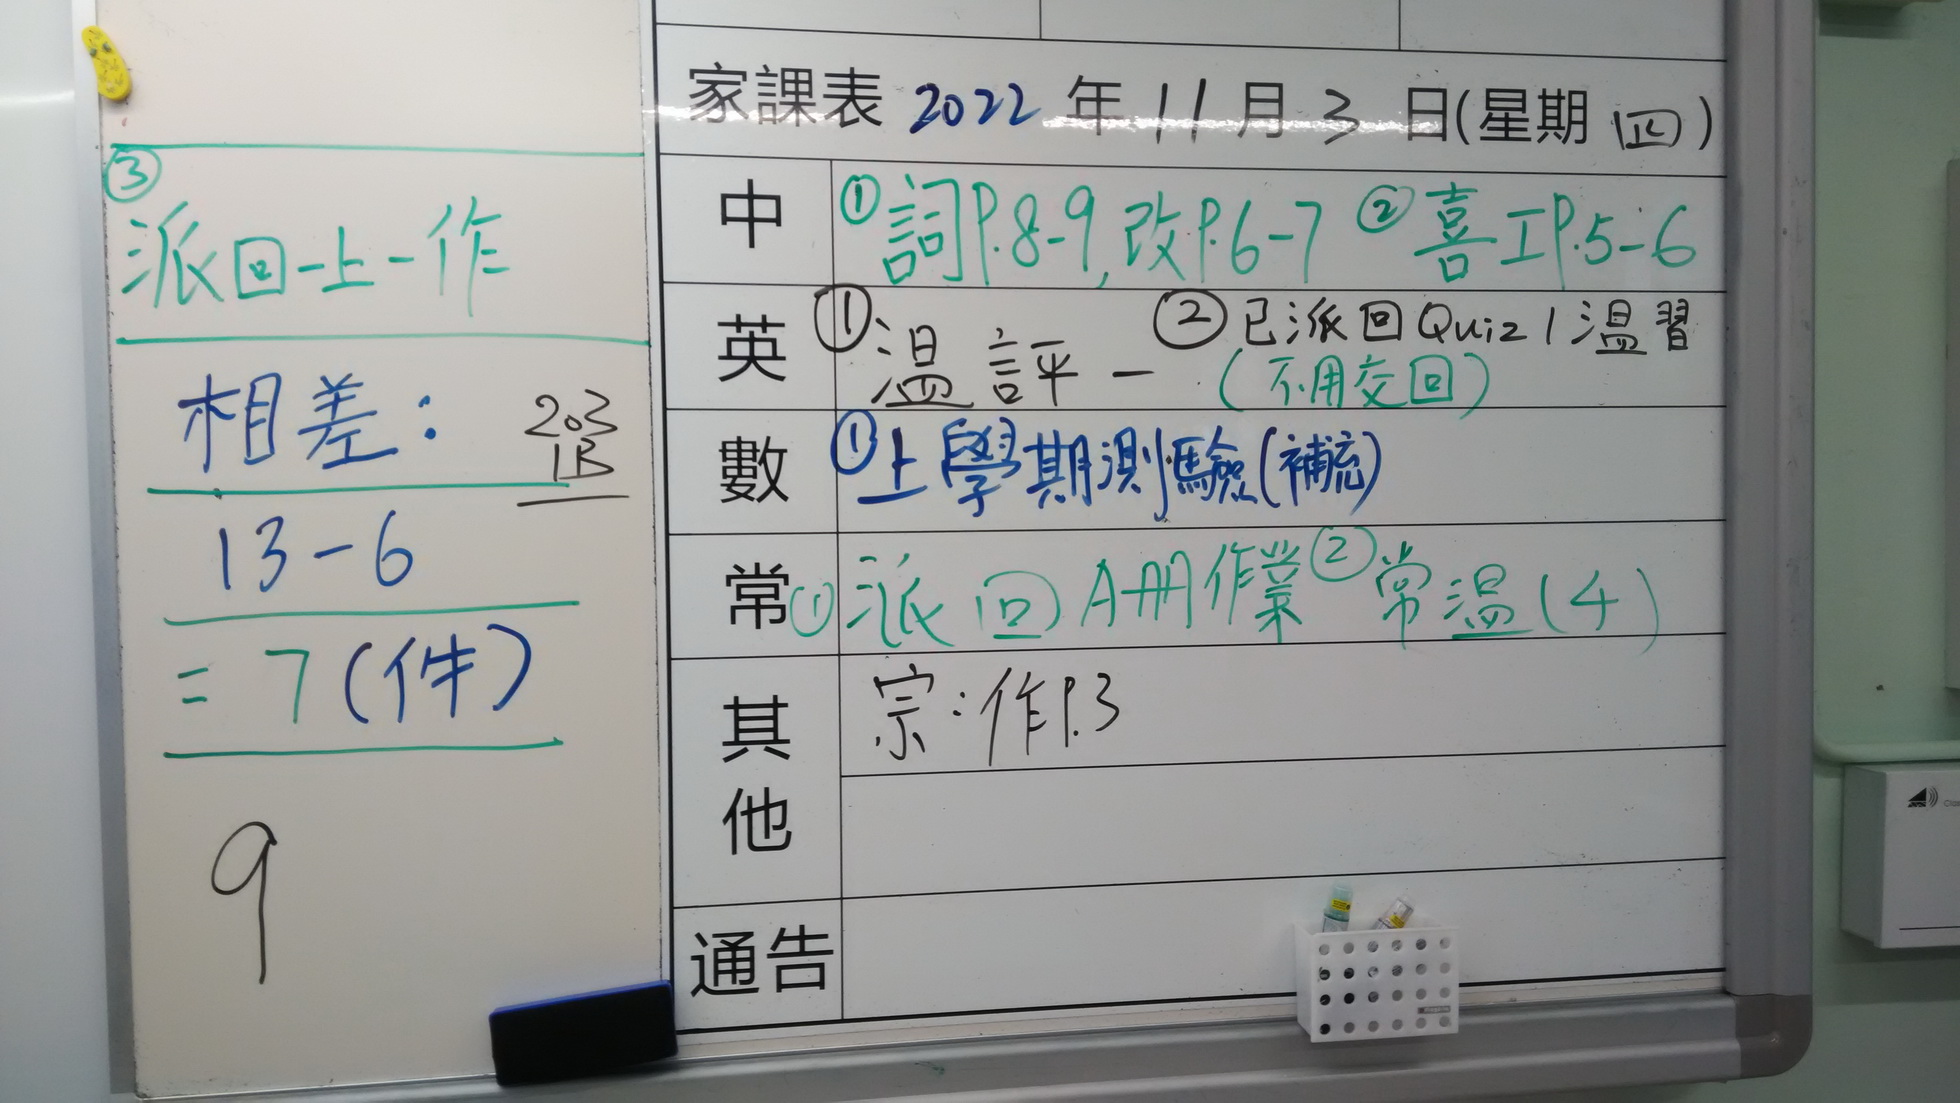 ③
派回一上一作
相差：
203
1B
13-6
=7(件)
9
家課表 2022 年 11 月 3 日(星期 四)
中 ①詞P.8-9,改P.6-7 ②喜工P.5-6
英 ①溫評一 ②已派回Quiz 1溫習
(不用交回)
數 ①上學期測驗(補充)
常 ①派回A冊作業 ②常溫(4)
其他 宗:作P.3
通告